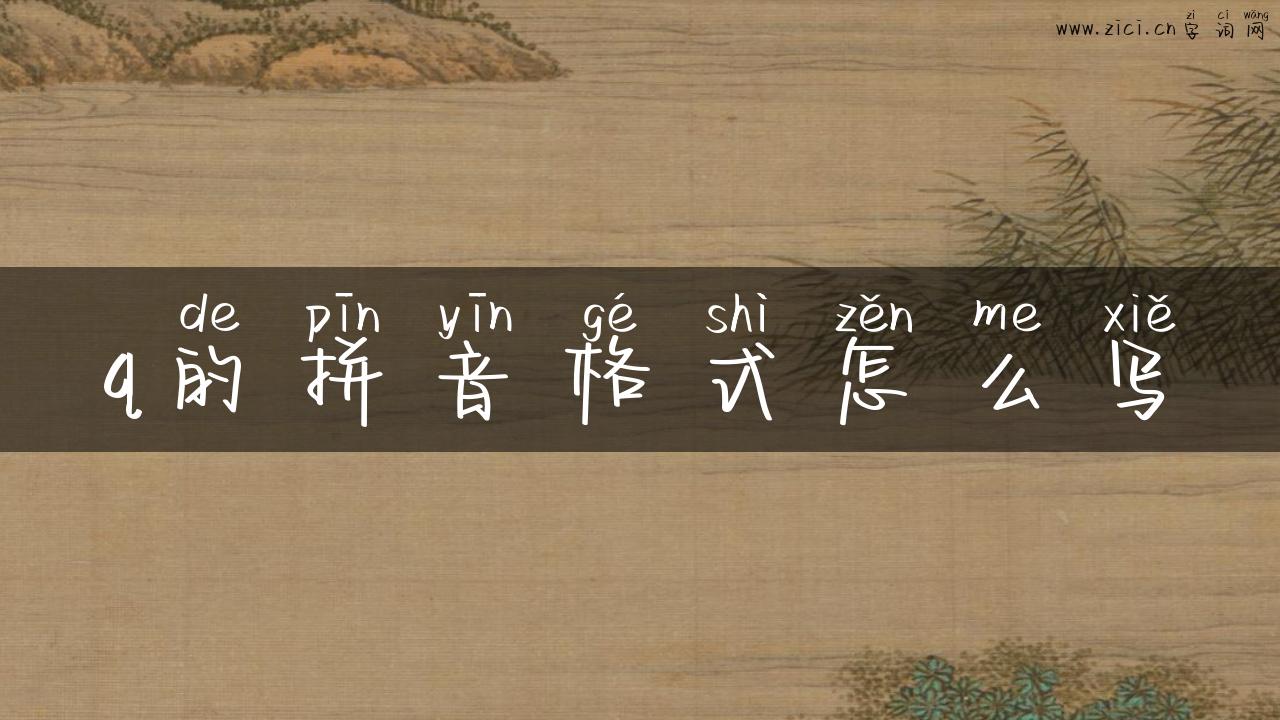 zì cí wǎng
www.zici.cn 字词网
de pīn yīn gé shì zěn me xiě
q的拼音格式怎么写